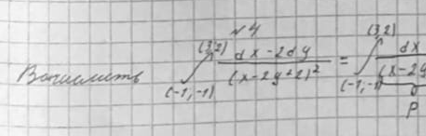 №4
Вычислить ∫_{(-1,-1)}^{(3,2)} \frac{dx-2dy}{(x-2y+2)^2} = ∫_{(-1,-1)}^{(3,2)} \frac{dx}{(x-2y
P